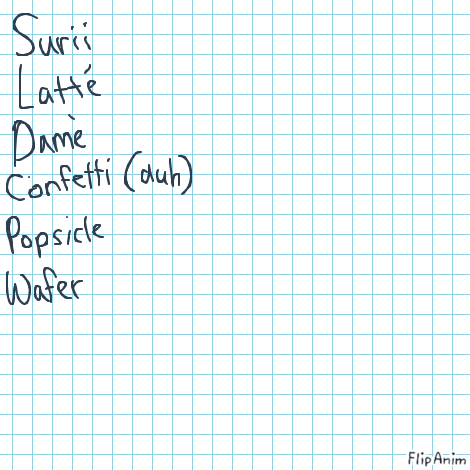 Surii
Latté
Damè
Confetti (duh)
Popsicle
Wafer
FlipAnim